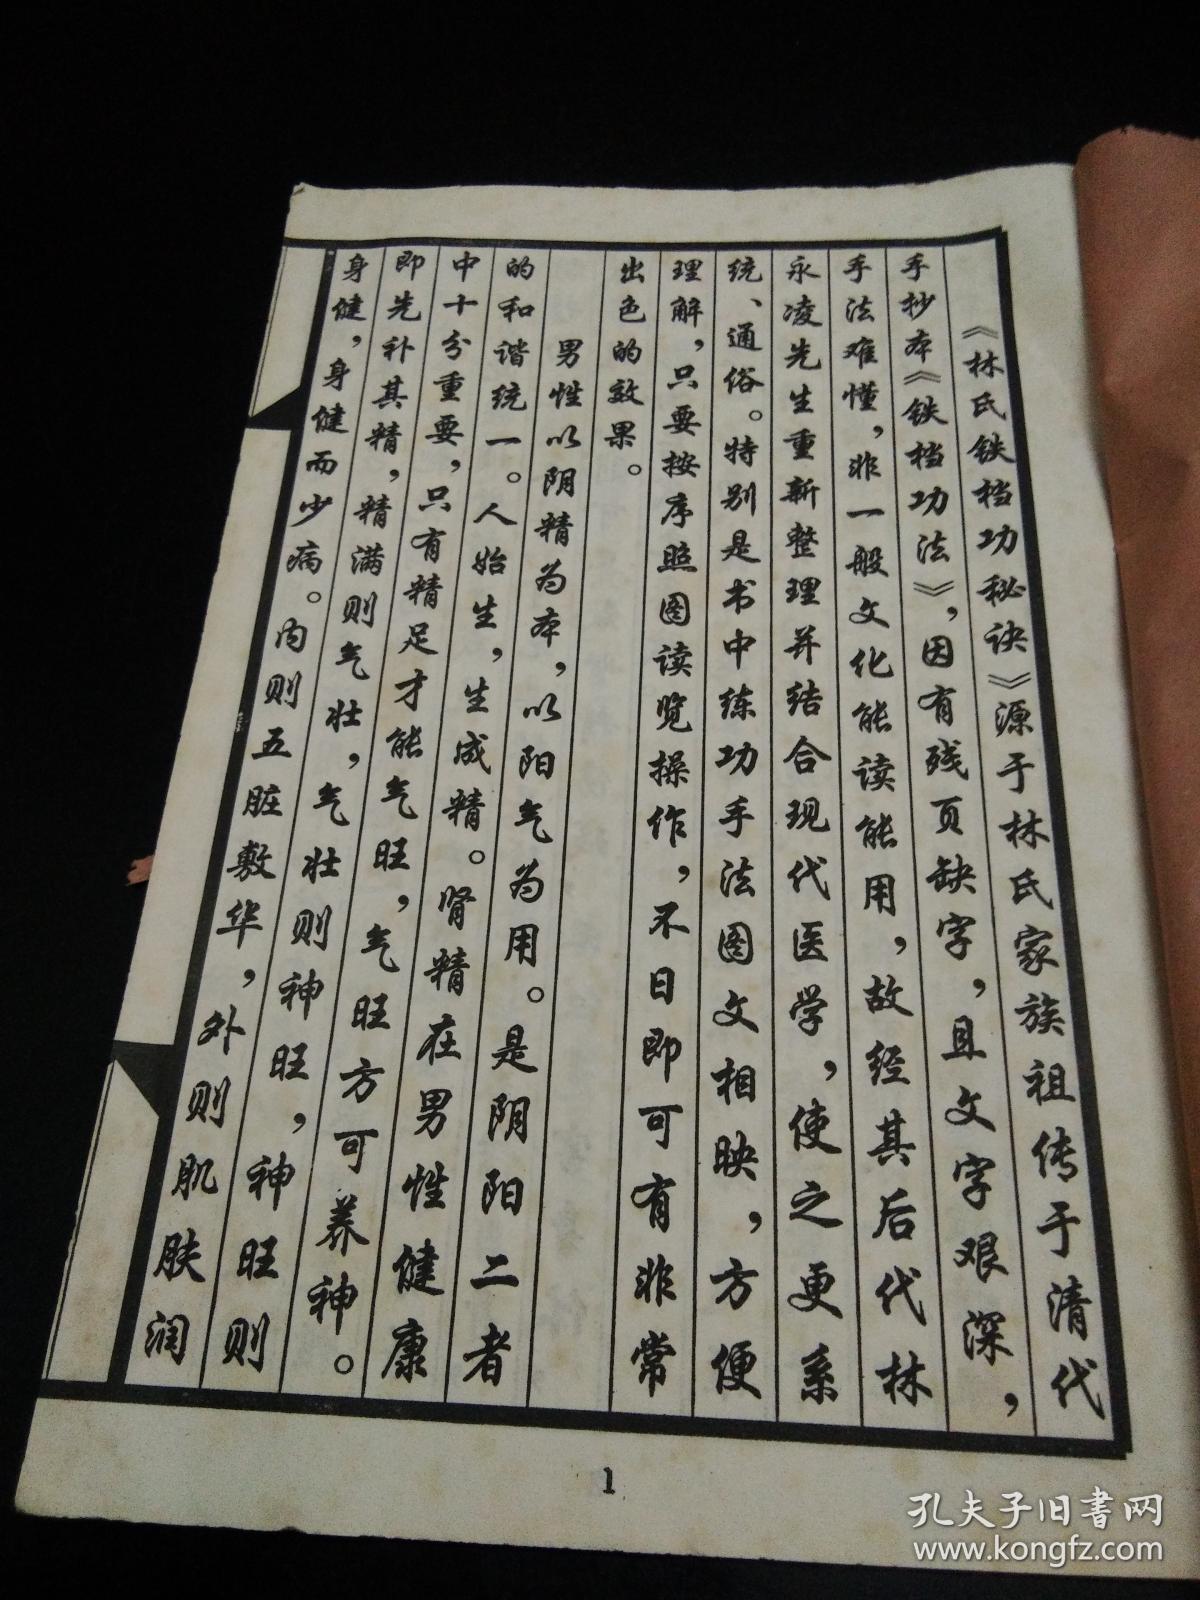 《林氏铁档功秘诀》源于林氏家族祖传于清代
手抄本《铁档功法》，因有残页缺字，且文字艰深，
手法难懂，非一般文化能读能用，故经其后代林
永凌先生重新整理并结合现代医学，使之更系
统、通俗。特别是书中练功手法图文相映，方便
理解，只要按序照图读览操作，不日即可有非常
出色的效果。
男性以阴精为本，以阳气为用。是阴阳二者
的和谐统一。人始生，生成精。肾精在男性健康
中十分重要，只有精足才能气旺，气旺方可养神。
即先补其精，精满则气壮，气壮则神旺，神旺则
身健，身健而少病。内则五脏敷华，外则肌肤润
1
孔夫子旧書网
www.kongfz.com